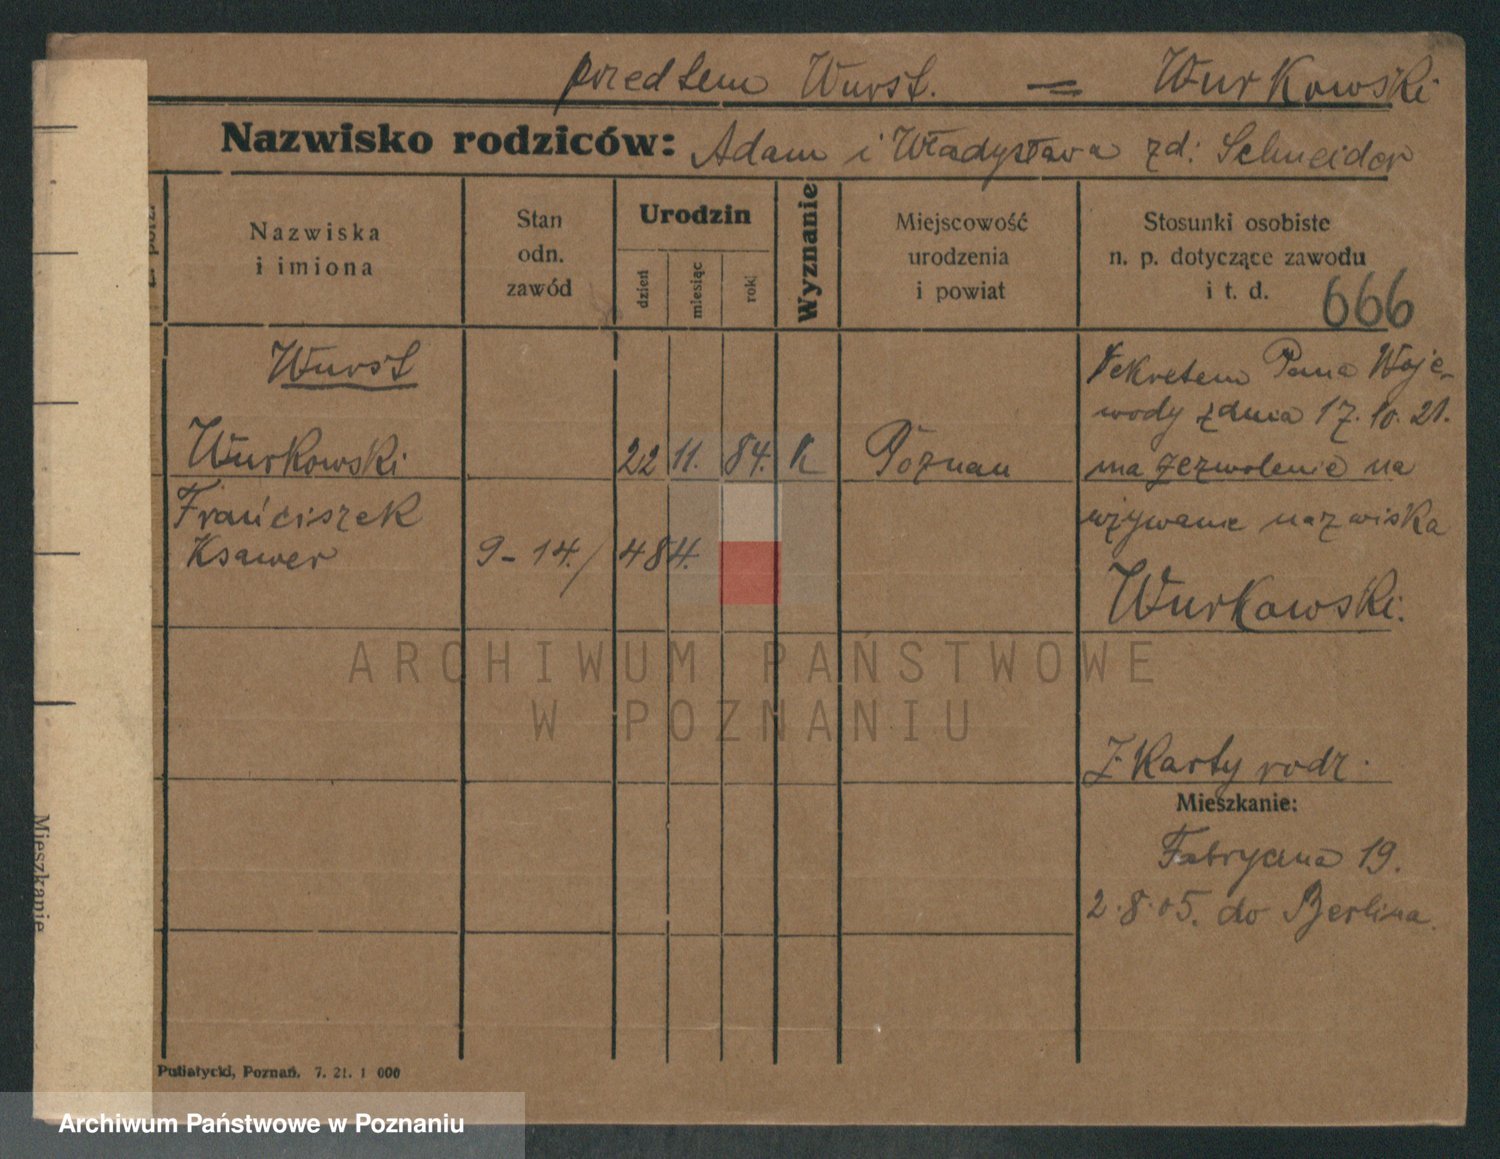 przedtem Wurst. = Wurkowski
Nazwisko rodziców: Adam i Władysława zd: Schneider
Nazwiska
i imiona
Stan
odn.
zawód
Urodzin
dzień
miesiąc
rok
Wyznanie
Miejscowość
urodzenia
i powiat
Stosunki osobiste
n. p. dotyczące zawodu
i t. d.
666
Wurst
Wurkowski 22 11. 84. K Poznań
Franciszek
Ksawer 9-14/484.
Dekretem Pana Woje-
wody z dnia 17. 10. 21.
ma zezwolenie na
używanie nazwiska
Wurkowski.
Z Karty rodz.
Mieszkanie:
Fabryczna 19.
2.8.05. do Berlina.
Mieszkanie
Putiatycki, Poznań. 7. 21. 1 000
ARCHIWUM PAŃSTWOWE
W POZNANIU
Archiwum Państwowe w Poznaniu